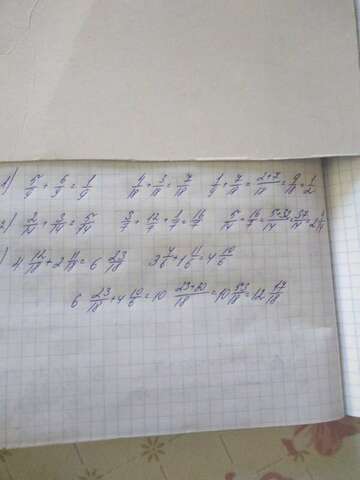 1) 5/9 + 6/9 = 1/9   4/18 + 3/18 = 7/18   1/9 + 7/18 = 2+7/18 = 9/18 = 1/2
2) 2/14 + 3/14 = 5/14   3/7 + 12/7 + 1/7 = 16/7   5/14 + 16/7 = 5+32/14 = 37/14 =
) 4 12/18 + 2 11/18 = 6 23/18   = 4 10/6
6 23/18 + 4 10/6 = 10 23+30/18 = 10 53/18 = 12 17/18